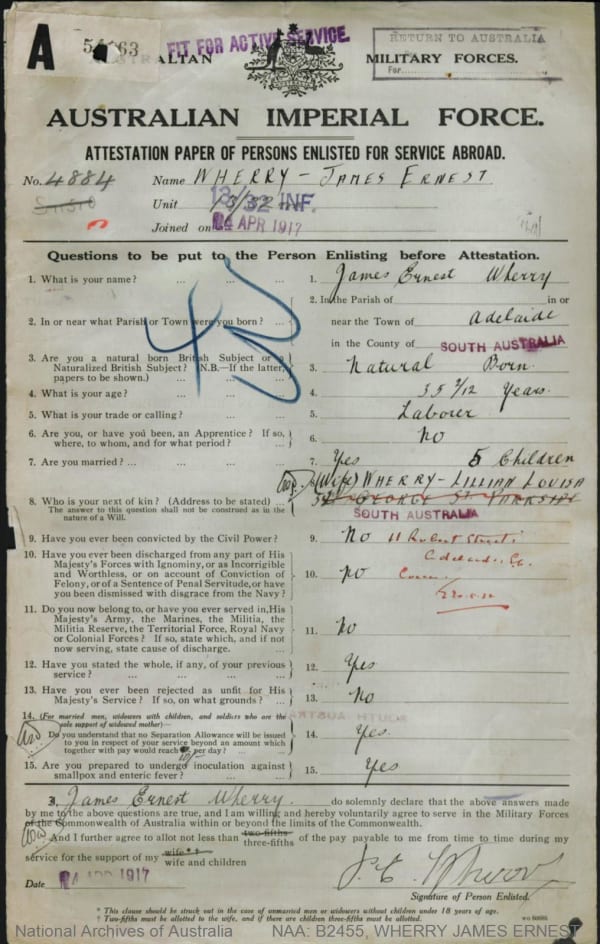 A
FIT FOR ACTIVE SERVICE.
MILITARY FORCES.
RETURN TO AUSTRALIA
For
AUSTRALIAN IMPERIAL FORCE.
ATTESTATION PAPER OF PERSONS ENLISTED FOR SERVICE ABROAD.
No. 4884 Name WHERRY - JAMES ERNEST
Unit 13/32 INF.
Joined on 24 APR 1917
Questions to be put to the Person Enlisting before Attestation.
1. What is your name? ... ... ... 1. James Ernest Wherry
2. In or near what Parish or Town were you born? ... 2. In the Parish of in or
near the Town of Adelaide
in the County of SOUTH AUSTRALIA
3. Are you a natural born British Subject or a
Naturalized British Subject? (N.B.—If the latter,
papers to be shown.) ... ... 3. Natural Born.
4. What is your age? ... ... ... 4. 35 2/12 Years.
5. What is your trade or calling? ... ... 5. Laborer
6. Are you, or have you been, an Apprentice? If so,
where, to whom, and for what period? ... 6. No
7. Are you married? ... ... ... 7. Yes 5 Children
(Wife) WHERRY - LILLIAN LOUISA
8. Who is your next of kin? (Address to be stated) ...
The answer to this question shall not be construed as in the
nature of a Will.
GEORGE ST PARKSIDE
SOUTH AUSTRALIA
9. Have you ever been convicted by the Civil Power? 9. No 11 Robert Street
10. Have you ever been discharged from any part of His
Majesty's Forces with Ignominy, or as Incorrigible
and Worthless, or on account of Conviction of
Felony, or of a Sentence of Penal Servitude, or have
you been dismissed with disgrace from the Navy? 10. No
11. Do you now belong to, or have you ever served in, His
Majesty's Army, the Marines, the Militia, the
Militia Reserve, the Territorial Force, Royal Navy
or Colonial Forces? If so, state which, and if not
now serving, state cause of discharge. ... 11. No
12. Have you stated the whole, if any, of your previous
service? ... ... ... 12. Yes
13. Have you ever been rejected as unfit for His
Majesty's Service? If so, on what grounds? ... 13. No
14. (For married men, widowers with children, and soldiers who are the
sole support of widowed mother)—
Do you understand that no Separation Allowance will be issued
to you in respect of your service beyond an amount which
together with pay would reach 10/- per day? ... 14. Yes.
SOUTH AUSTRALIA
15. Are you prepared to undergo inoculation against
smallpox and enteric fever? ... ... 15. Yes
I, James Ernest Wherry do solemnly declare that the above answers made
by me to the above questions are true, and I am willing and hereby voluntarily agree to serve in the Military Forces
of the Commonwealth of Australia within or beyond the limits of the Commonwealth.
And I further agree to allot not less than two-fifths
three-fifths of the pay payable to me from time to time during my
service for the support of my wife
wife and children
Date 24 APR 1917 J. E. Wherry
Signature of Person Enlisted.
* This clause should be struck out in the case of unmarried men or widowers without children under 18 years of age.
† Two-fifths must be allotted to the wife, and if there are children three-fifths must be allotted.
National Archives of Australia NAA: B2455, WHERRY JAMES ERNEST